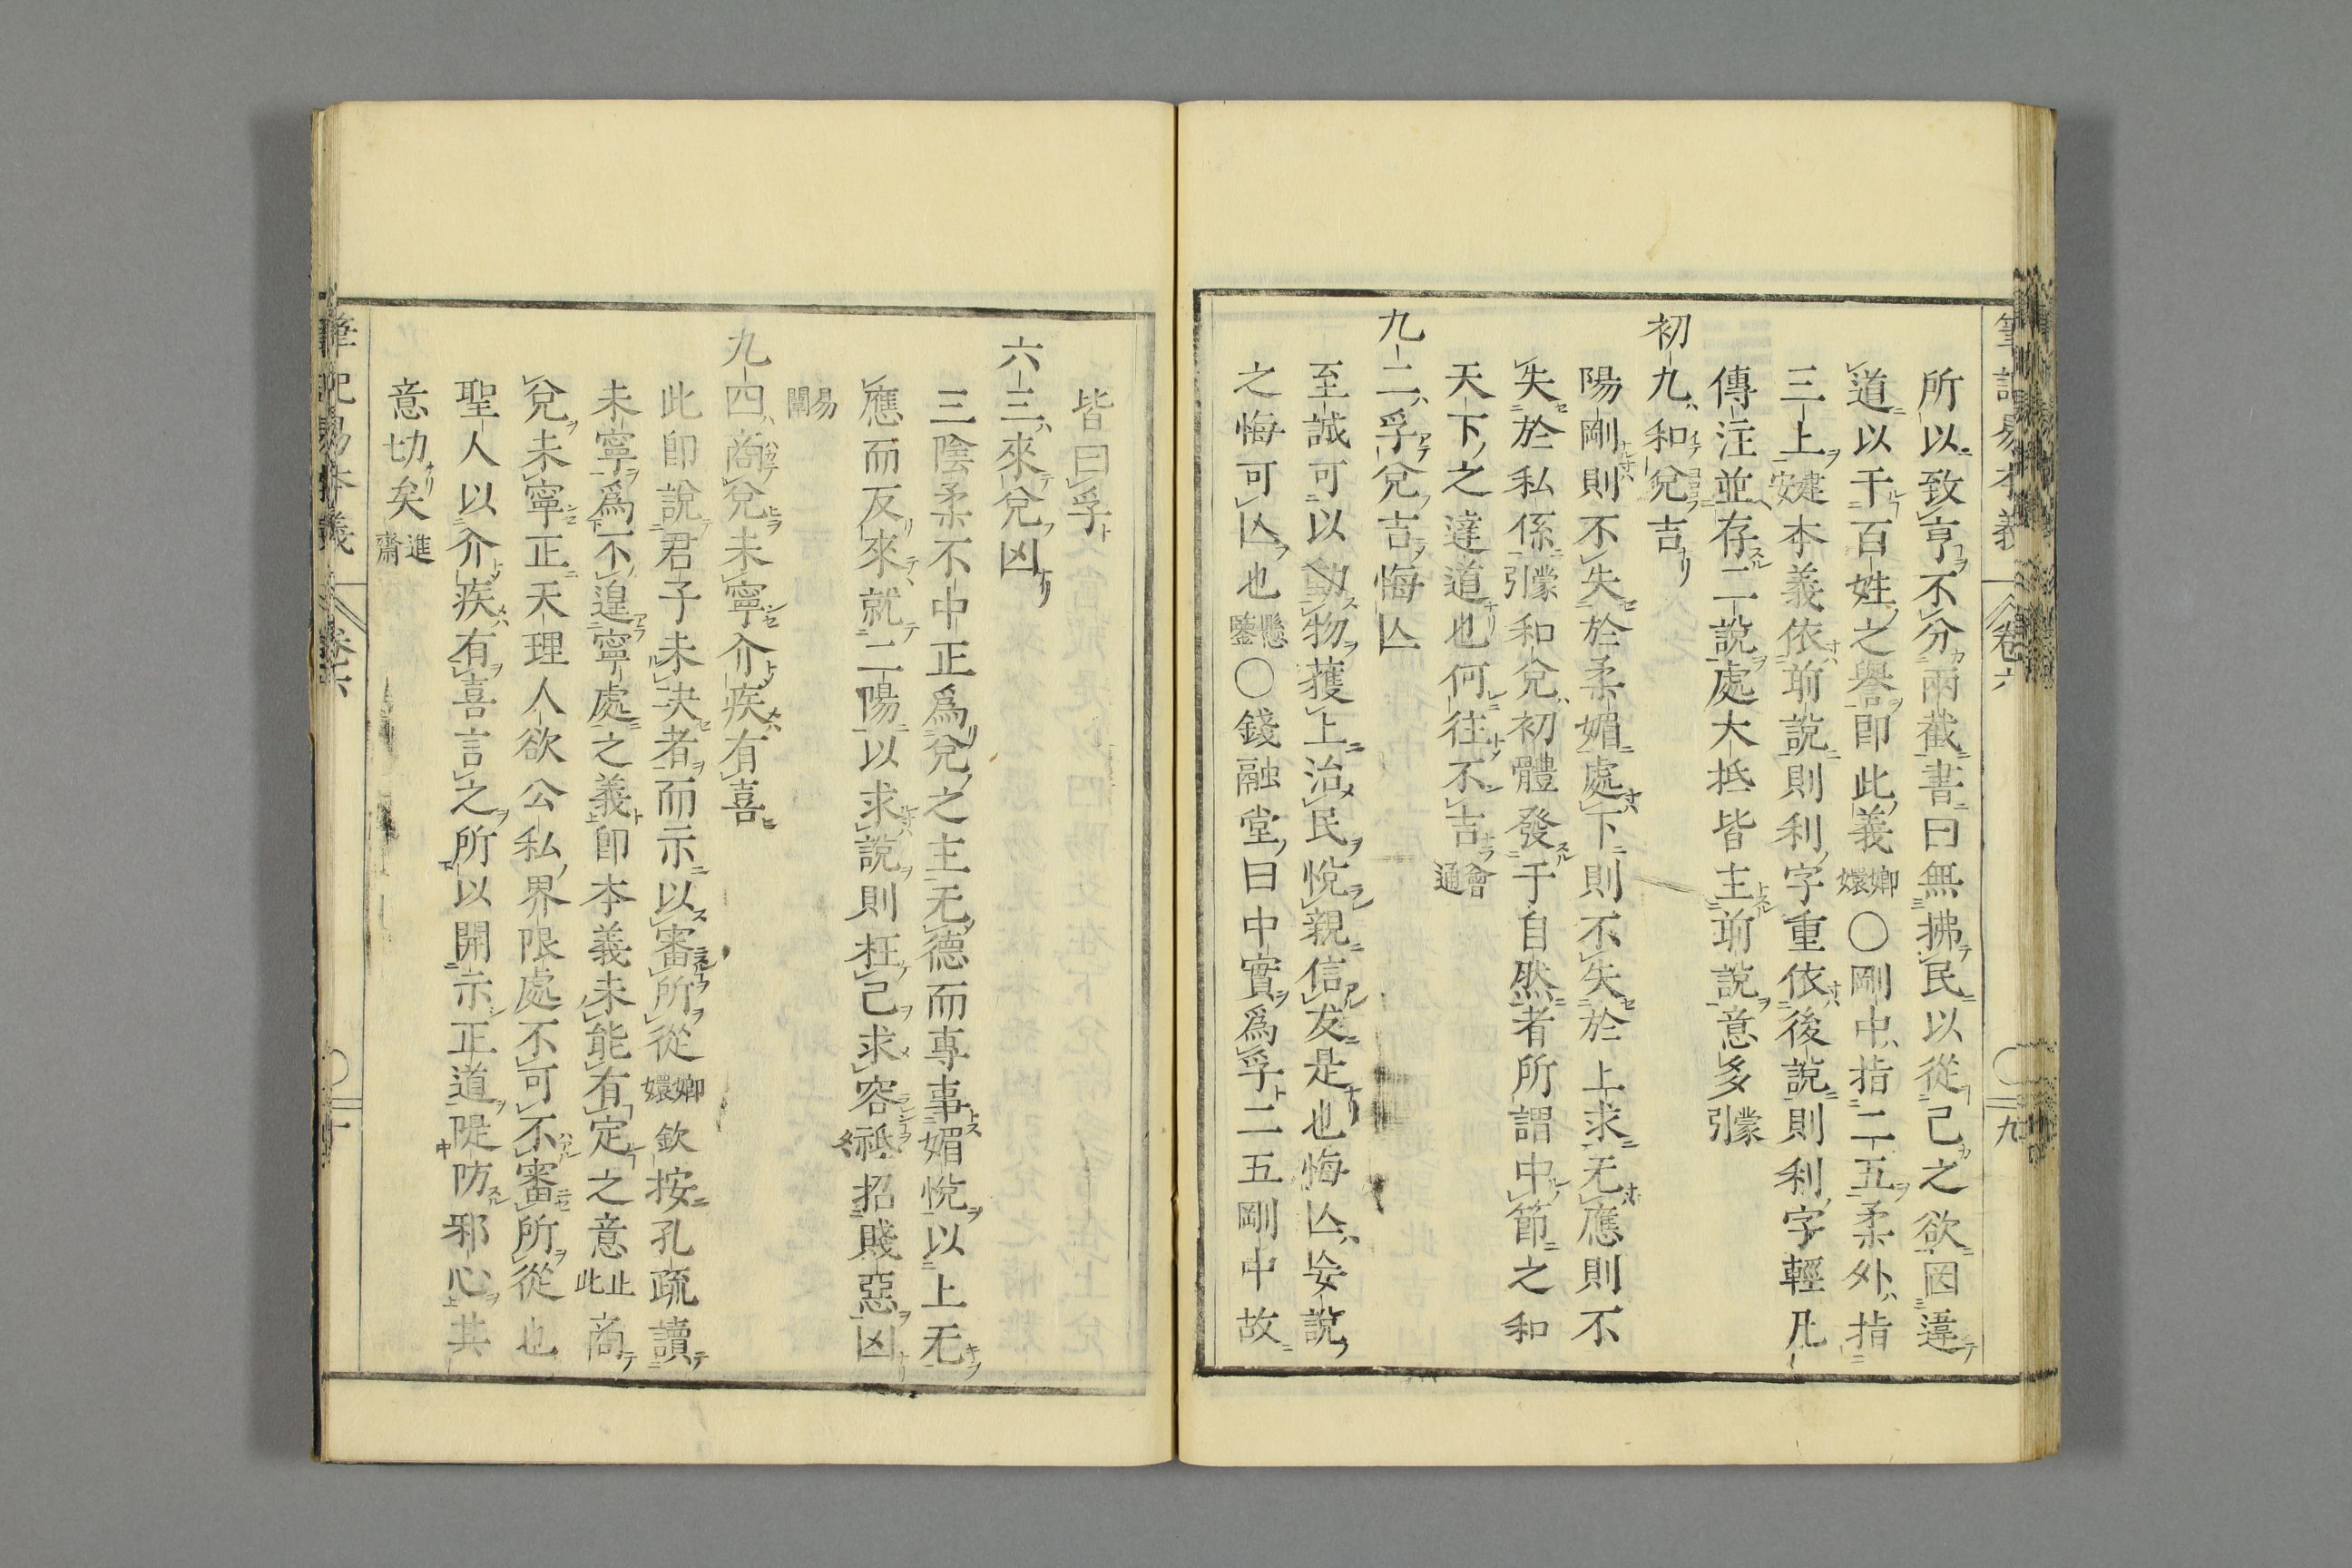 所以致亨不分兩截書曰無拂民以從己之欲罔違
道以干百姓之譽即此義嫏嬛〇剛中指二五柔外指
三上建安本義依前說則利字重依後說則利字輕凡
傳注並存二說處大抵皆主前說意多蒙引
初九和兌吉
陽剛則不失於柔媚處下則不失於上求无應則不
失於私係蒙引和兌初體發于自然者所謂中節之和
天下之達道也何往不吉會通
九二孚兌吉悔亾
至誠可以動物獲上治民悅親信友是也悔亾妄說
之悔可亾也懸鑒〇錢融堂曰中實爲孚二五剛中故
筆記易本義 卷六 〇二九
皆曰孚
六三來兌凶
三陰柔不中正爲兌之主无德而專事媚悅以上无
應而反來就二陽以求說則枉己求容祗招賤惡凶
易闡
九四商兌未寧介疾有喜
此即說君子未決者而示以審所從嫏嬛欽按孔疏讀
未寧爲不遑寧處之義即本義未能有定之意止此商
兌未寧正天理人欲公私界限處不可不審所從也
聖人以介疾有喜言之所以開示正道隄防邪心其
意切矣進齋
筆記易本義 卷六